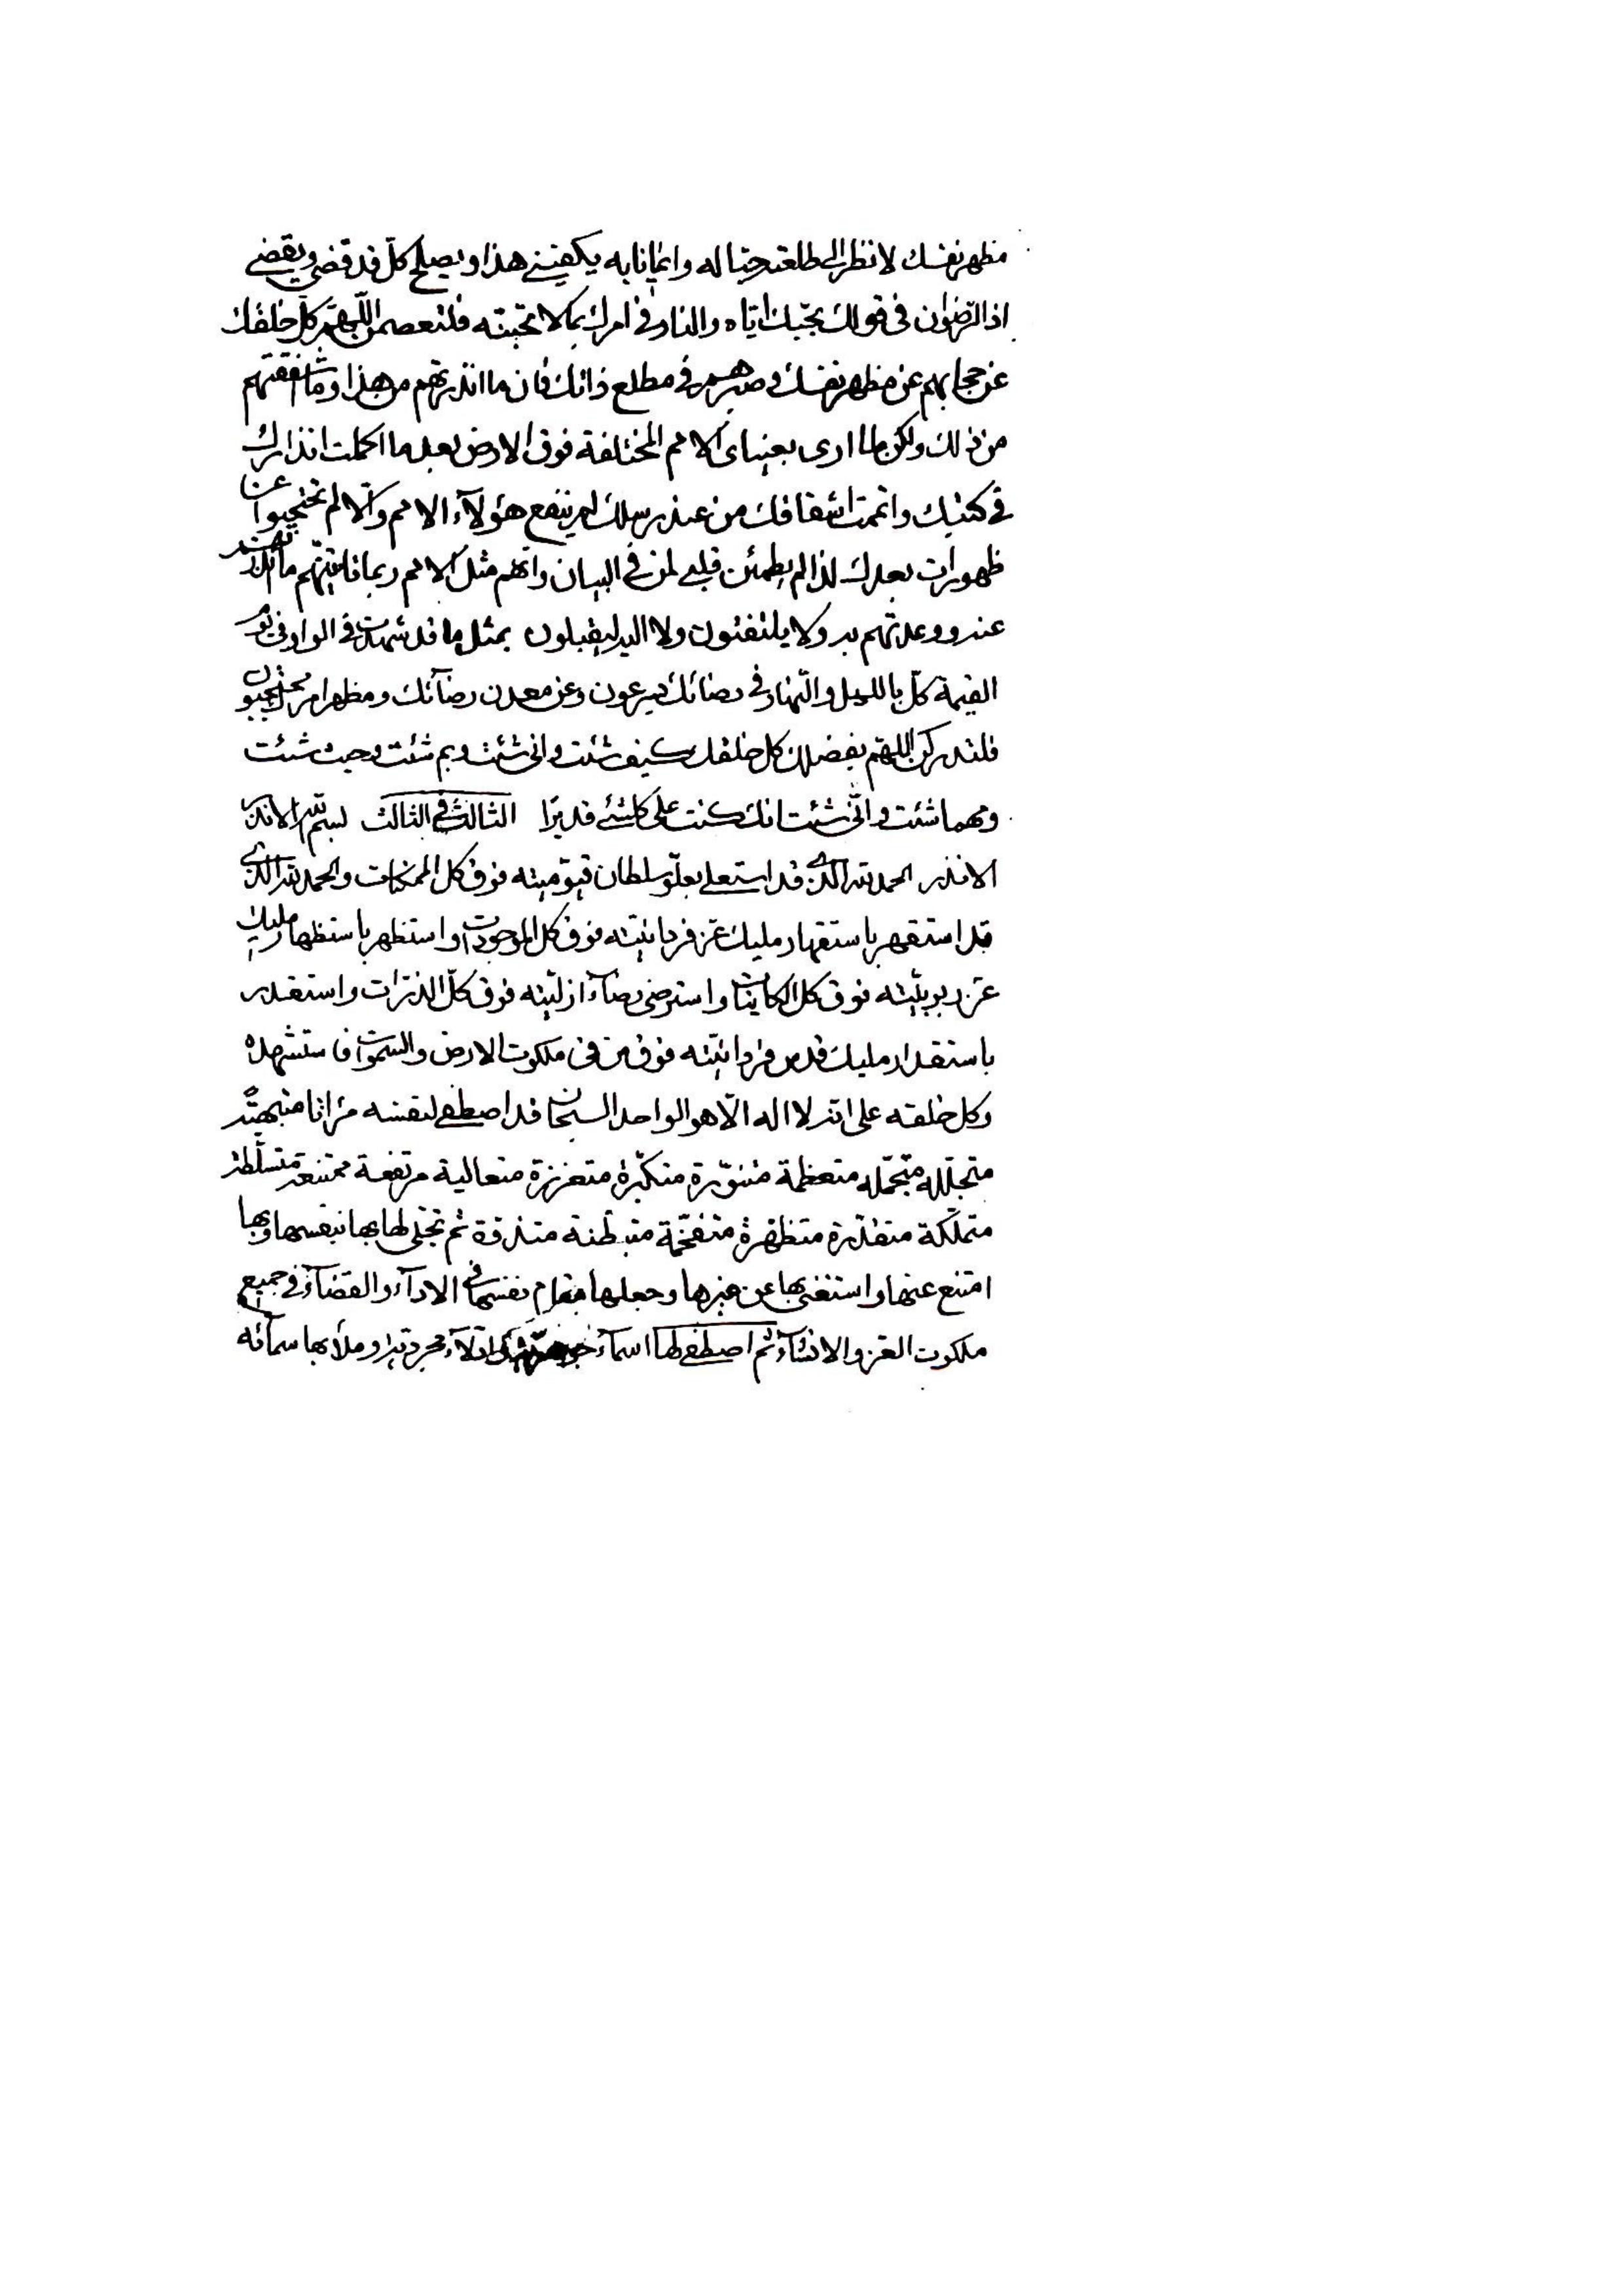 مظهر نفسك لانظر الى طلعته حبا له وايمانا به يكفينى هذا ويصلح كل قد قضى ويقضى
اذ الرضوان فى قولك بحبك اياه والنار فى امرك بما لا تحبنه فلتعصمن اللهم كل خلقك
عن حجابهم عن مظهر نفسك و صبرهم فى مطلع ذاتك فان ما انذرتهم من هذا وما شفقتهم
من ذلك ولكن لما ارى بعيناى الامم المختلفة فوق الارض بعد ما اكملت انذارك
فى كتبك واتممت اشفاقك من عند رسلك لم ينفع هؤلاء الامم والا لم تحتجبوا عن
ظهورات بعدك لذا لم يطمئن قلبى لمن فى البيان وانهم مثل الامم ربما
عنه ووعدتهم به ولا يلتفتون ولا اليه ليقبلون بمثل ما قد شهدت فى الواد فى يوم
القيمة كل بالليل والنهار فى رضائك يسرعون وعن معدن رضآئك ومظهر امرك يحتجبون
فلتدركن اللهم بفضلك كل خلقك كيف شئت وانى شئت وبم شئت وحيث شئت
ومهما شئت وانى شئت انك كنت على كلشئ قديرا الثالث فى الثالث بسم الله الاقدر
الاقدر الحمد لله الذى قد استعلى بعلو سلطان قيوميته فوق كل الممكنات والحمد لله الذى
قد استقهر باستقهار مليك عز فردانيته فوق كل الموجودات واستظهر باستظهار مليك
عز ربوبيته فوق كل الكاينات واسترضى برضآء ازليته فوق كل الذرات واستقدر
باستقدار مليك قدس فردانيته فوق من فى ملكوت الارض والسموات فاستشهده
وكل خلقه على انه لا اله الا هو الواحد السبحان قد اصطفى لنفسه مراتا متبهية
متجلله متجمله متعظمة متنورة متكبرة متعززة متعالية مرتفعة ممتنعة متسلطة
متملكة متقدرة متظهرة متفخمة متبطنة متذوقة ثم تجلى لها بها بنفسها وبها
امتنع عنها واستغنى بها عن غيرها وجعلها مقام نفسها فى الادآء والقضآء فى جميع
ملكوت العز والانشآء ثم اصطفى لها اسمآء ادلآء مجردية وملأ بها سمآئه